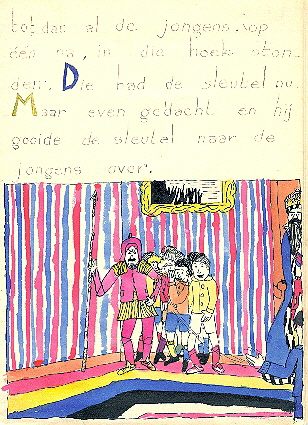 totdat al de jongens, op
één na, in die hoek ston-
den. Die had de sleutel nu.
Maar even gedacht en hij
gooide de sleutel naar de
jongens over.